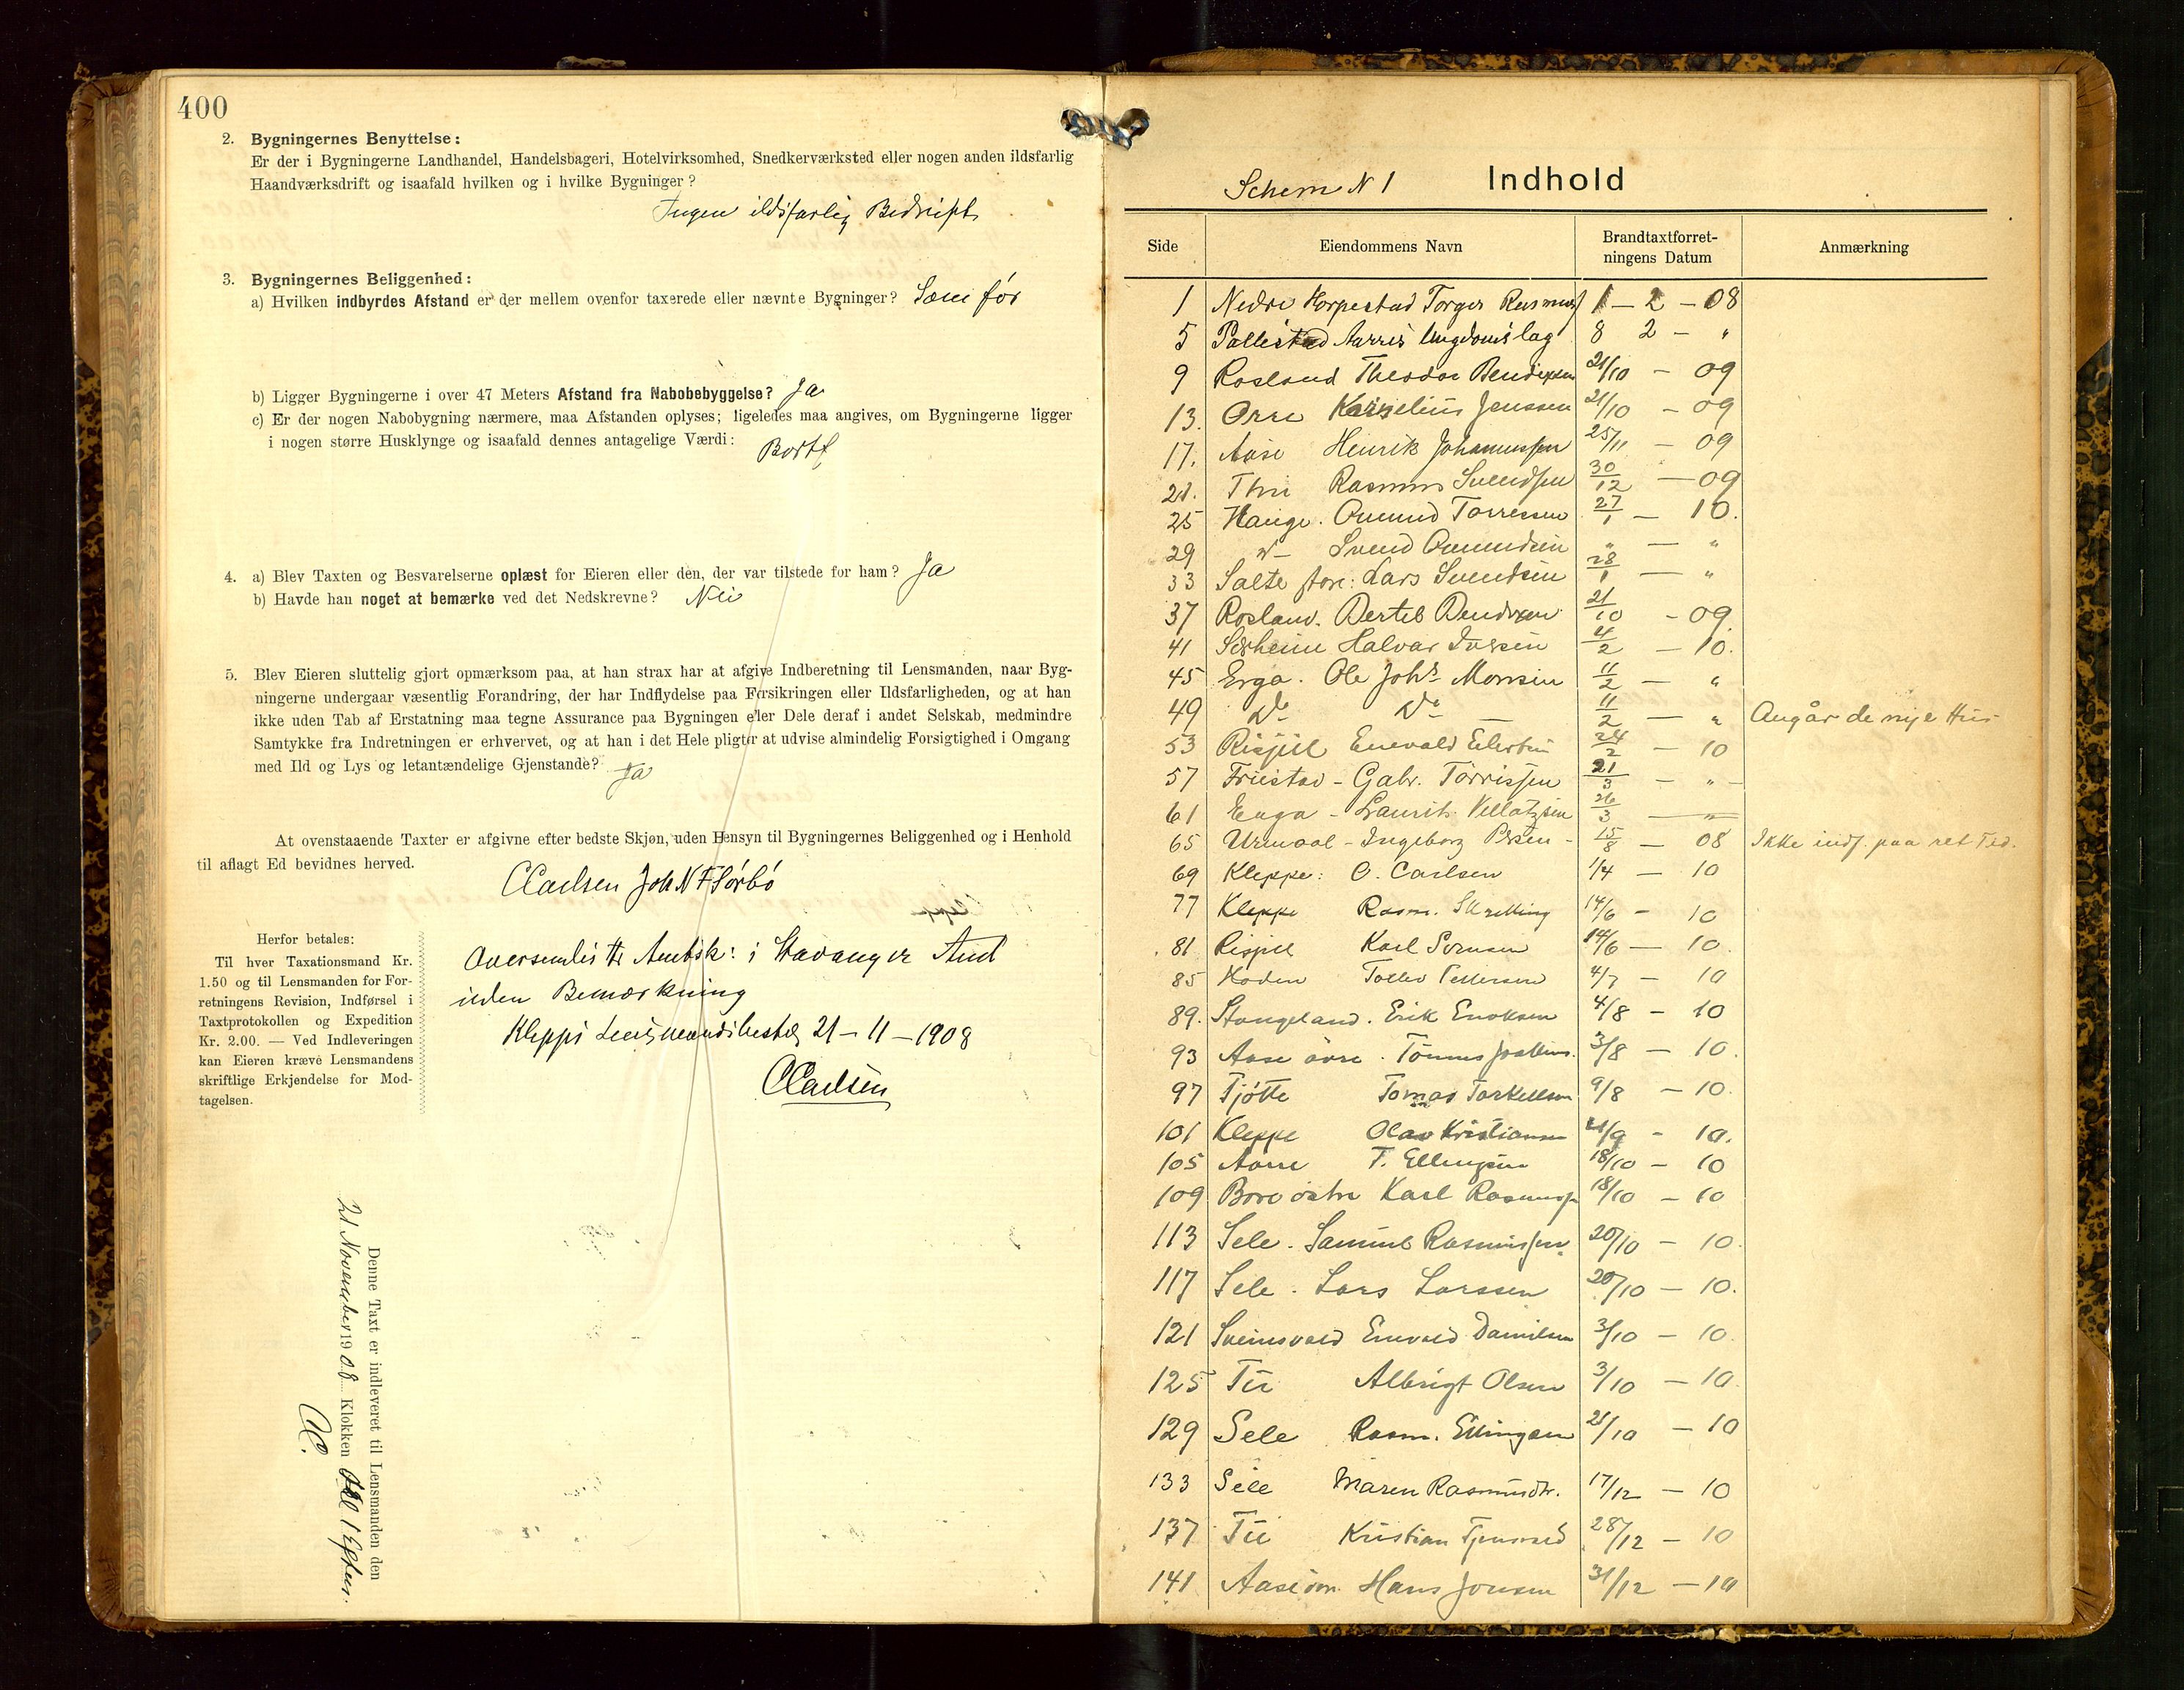 400
2. Bygningernes Benyttelse:
Er der i Bygningerne Landhandel, Handelsbageri, Hotelvirksomhed, Snedkerværksted eller nogen anden ildsfarlig
Haandværksdrift og isaafald hvilken og i hvilke Bygninger?
Ingen ildsfarlig Bedrift
3. Bygningernes Beliggenhed:
a) Hvilken indbyrdes Afstand er der mellem ovenfor taxerede eller nævnte Bygninger? Som før
b) Ligger Bygningerne i over 47 Meters Afstand fra Nabobebyggelse? Ja
c) Er der nogen Nabobygning nærmere, maa Afstanden oplyses; ligeledes maa angives, om Bygningerne ligger
i nogen større Husklynge og isaafald dennes antagelige Værdi:
Bortf
4. a) Blev Taxten og Besvarelserne oplæst for Eieren eller den, der var tilstede for ham? Ja
b) Havde han noget at bemærke ved det Nedskrevne? Nei
5. Blev Eieren sluttelig gjort opmærksom paa, at han strax har at afgive Indberetning til Lensmanden, naar Byg-
ningerne undergaar væsentlig Forandring, der har Indflydelse paa Forsikringen eller Ildsfarligheden, og at han
ikke uden Tab af Erstatning maa tegne Assurance paa Bygningen eller Dele deraf i andet Selskab, medmindre
Samtykke fra Indretningen er erhvervet, og at han i det Hele pligter at udvise almindelig Forsigtighed i Omgang
med Ild og Lys og letantændelige Gjenstande? Ja
At ovenstaaende Taxter er afgivne efter bedste Skjøn, uden Hensyn til Bygningernes Beliggenhed og i Henhold
til aflagt Ed bevidnes herved.
CCarlsen Joh N F Sørbø
Herfor betales:
Til hver Taxationsmand Kr.
1.50 og til Lensmanden for For-
retningens Revision, Indførsel i
Taxtprotokollen og Expedition
Kr. 2.00. — Ved Indleveringen
kan Eieren kræve Lensmandens
skriftlige Erkjendelse for Mod-
tagelsen.
Oversendes Hr Amtsk: i Stavanger Amt
uden Bemærkning
Klepps Lensmandsbestel 21 – 11 – 1908
CCarlsen
Denne Taxt er indleveret til Lensmanden den
21 November 1908 Klokken 1 Efterm.
CC.
Schem N 1 Indhold
Side Eiendommens Navn Brandtaxtforret-
ningens Datum Anmærkning
1 Nedre Horpestad Torger Rasmuss 1 – 2 – 08
5 Pollestad Aarres Ungdomslag 8 2 – "
9 Rosland Theodor Bendixsen 21/10 – 09
13. Orre Kornelius Jonssen 21/10 – 09
17. Aase Henrik Johannessen 25/11 – 09
21. Thu Rasmus Svendsen 30/12 – 09
25 Hauge. Omund Torressen 27/1 – 10.
29 do Svend Omundsen " – "
33 Salte store: Lars Svendsen 28/1 – "
37 Rosland. Bertel Bendixen 21/10 – 09
41 Sørheim Halvar Iversen 4/2 – 10.
45 Erga. Ole Johs Monsen 11/2 – "
49 do do 11/2 – " Angår de nye Hus
53 Risjell Enevald Eilertsen 24/2 – 10
57 Friestad – Gabr. Torrissen 21/3 – " –
61 Enga – Laurits Vellatzsen 26/3 – "
65 Urmaal – Ingeborg Persen – 15/8 – 08 Ikke indf. paa ret Tid.
69 Kleppe: C. Carlsen 1/4 – 10
77 Kleppe Rasm. Skretting 14/6 – 10
81 Risjell Karl Sørensen 14/6 – 10.
85 Hoden Tollev Pettersen 4/7 – 10
89. Stangeland. Erik Enoksen 4/8 – 10
93 Aase øvre. Tønnes 3/8 – 10.
97 Tjøtte Tomas Torkellsen 9/8 – 10.
101 Kleppe Olav Kristiansen 21/9 – 10.
105 Aarre T. Ellingsen 18/10 – 10
109 Bore østre Karl Rasmussen 18/10 – 10
113 Sele. Samuel Rasmussen 20/10 – 10.
117 Sele. Lars Larssen 20/10 – 10.
121 Sveinsvold Enevald Danielsen 3/10 – 10.
125 Tu Albrigt Olsen 3/10 – 10.
129 Sele Rasm. Ellingsen 21/10 – 10
133 Sele Maren Rasmusdtr. 17/12 – 10
137 Tu Kristian Tjensvold 28/12 – 10
141 Aase øvr. Hans Jonsen 31/12 – 10